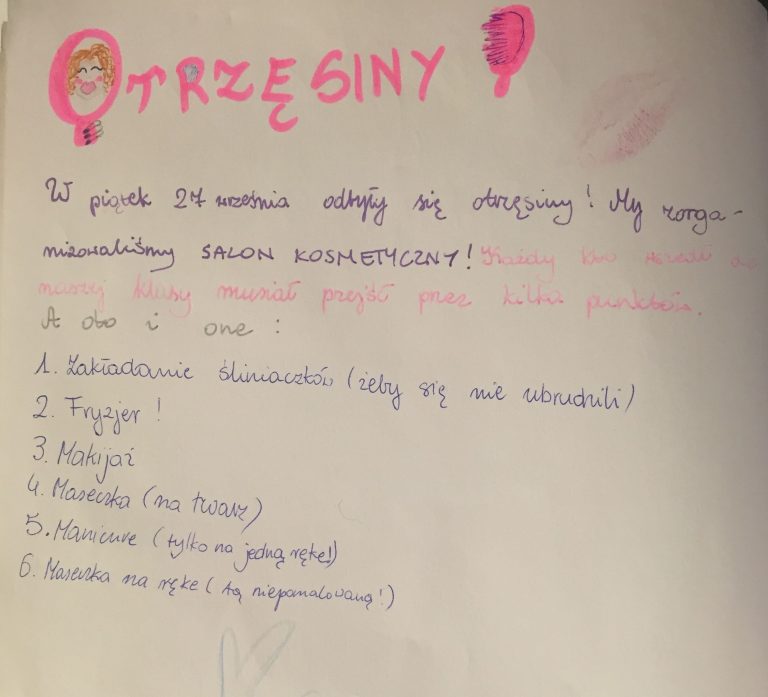 OTRZĘSINY
W piątek 27 września odbyły się otrzęsiny! My zorga-
nizowaliśmy SALON KOSMETYCZNY! Każdy kto wszedł do
naszej klasy musiał przejść przez kilka punktów.
A oto i one:
1. Zakładanie śliniaczków (żeby się nie ubrudnili)
2. Fryzjer!
3. Makijaż
4. Maseczka (na twarz)
5. Manicure (tylko na jedną rękę!)
6. Maseczka na rękę (tą niepomalowaną!)